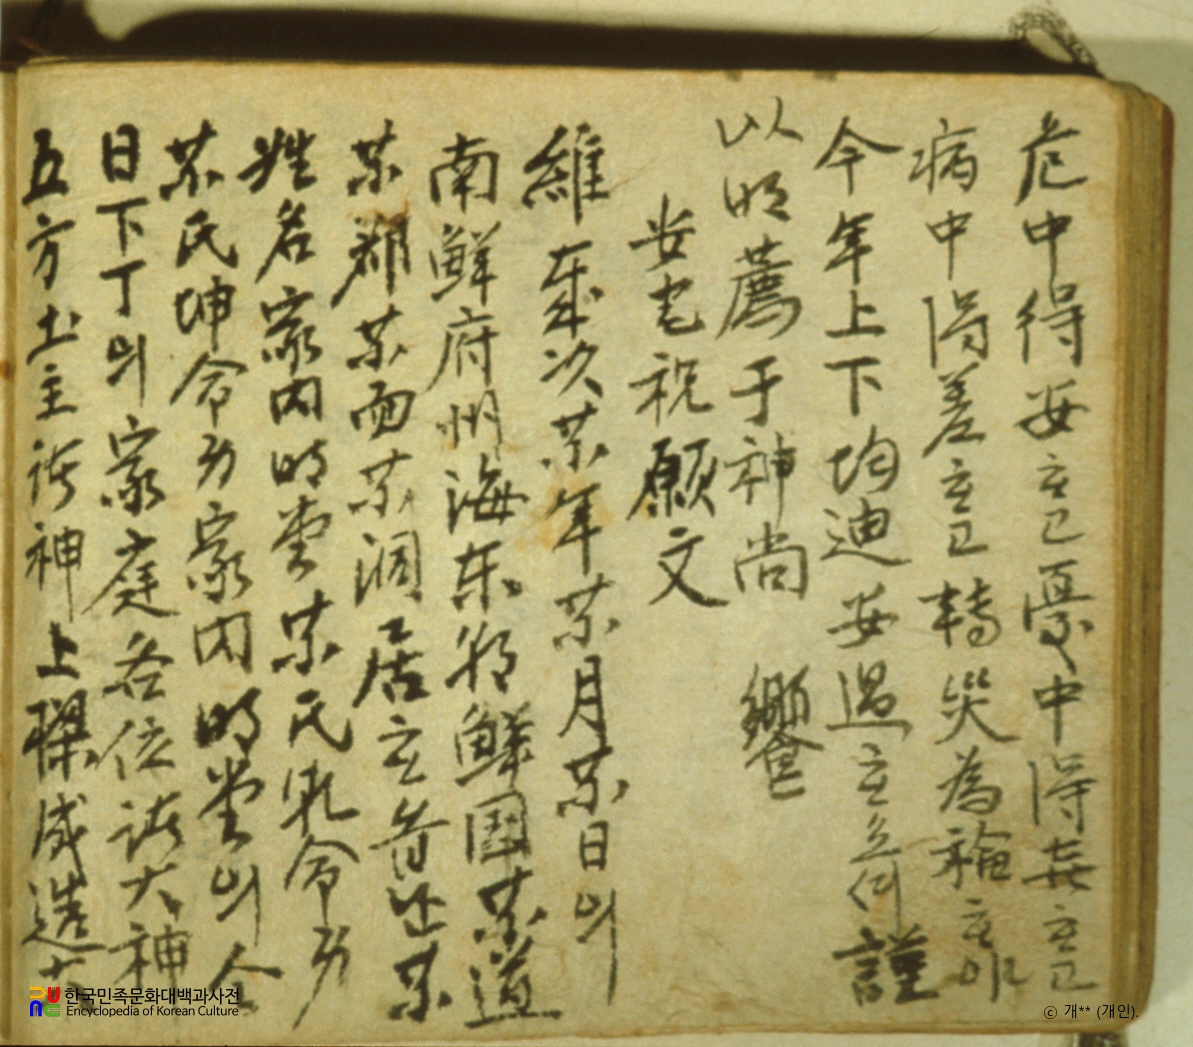 危中得安立고憂中得喜立고
病中得差立고轉災為福立야
今年上下均迪安過立 謹
以 薦于神尚 饗
安宅祝願文
維歲次某年某月某日의
南鮮府州海東朝鮮國某道
某郡某面某洞居立 某
姓名家内明堂某氏乾命 
某氏坤命 家内明堂의 
日下丁의家庭各位諸大神
五方土主諸神上樑成造大
한국민족문화대백과사전
Encyclopedia of Korean Culture
ⓒ 개** (개인).